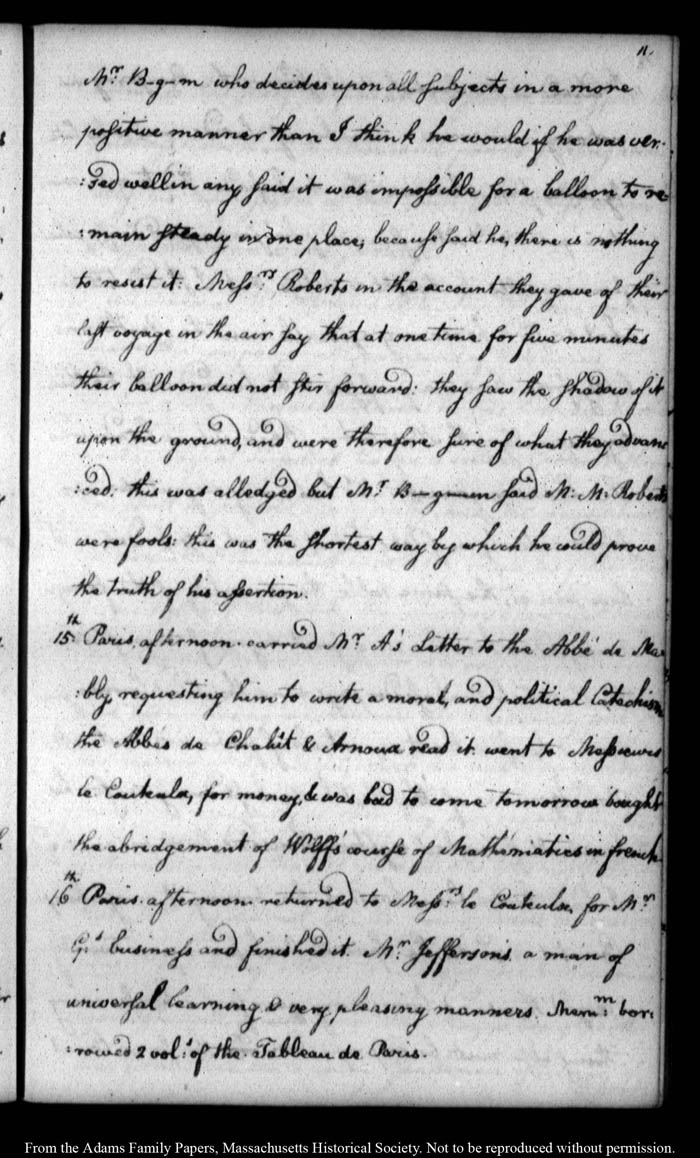 11.
Mr. B-g-m who decides upon all subjects in a more
positive manner than I think he would if he was ver-
:sed well in any said it was impossible for a balloon to re-
:main steady in one place; because said he, there is nothing
to resist it: Messrs. Roberts in the account they gave of their
last voyage in the air say that at one time for five minutes
their balloon did not stir forward: they saw the shadow of it
upon the ground, and were therefore sure of what they advanc
:ced: this was alledged but Mr. B-g-m said M: M: Roberts
were fools: this was the shortest way by which he could prove
the truth of his assertion.
15th. Paris, afternoon. carried Mr. A's Letter to the Abbé de Ma-
:bly, requesting him to write a moral, and political Catechism
the Abbes de Chalût & Arnoux read it. went to Messieurs
le Couteulx, for money, & was bad to come tomorrow bought
the abridgement of Wolff's course of Mathematics in french
16th. Paris. afternoon. returned to Messrs. le Couteulx, for Mr.
G's business and finished it. Mr. Jefferson's. a man of
universal learning & very pleasing manners. Memm: bor:
:rowed 2 vols: of the Tableau de Paris.
From the Adams Family Papers, Massachusetts Historical Society. Not to be reproduced without permission.